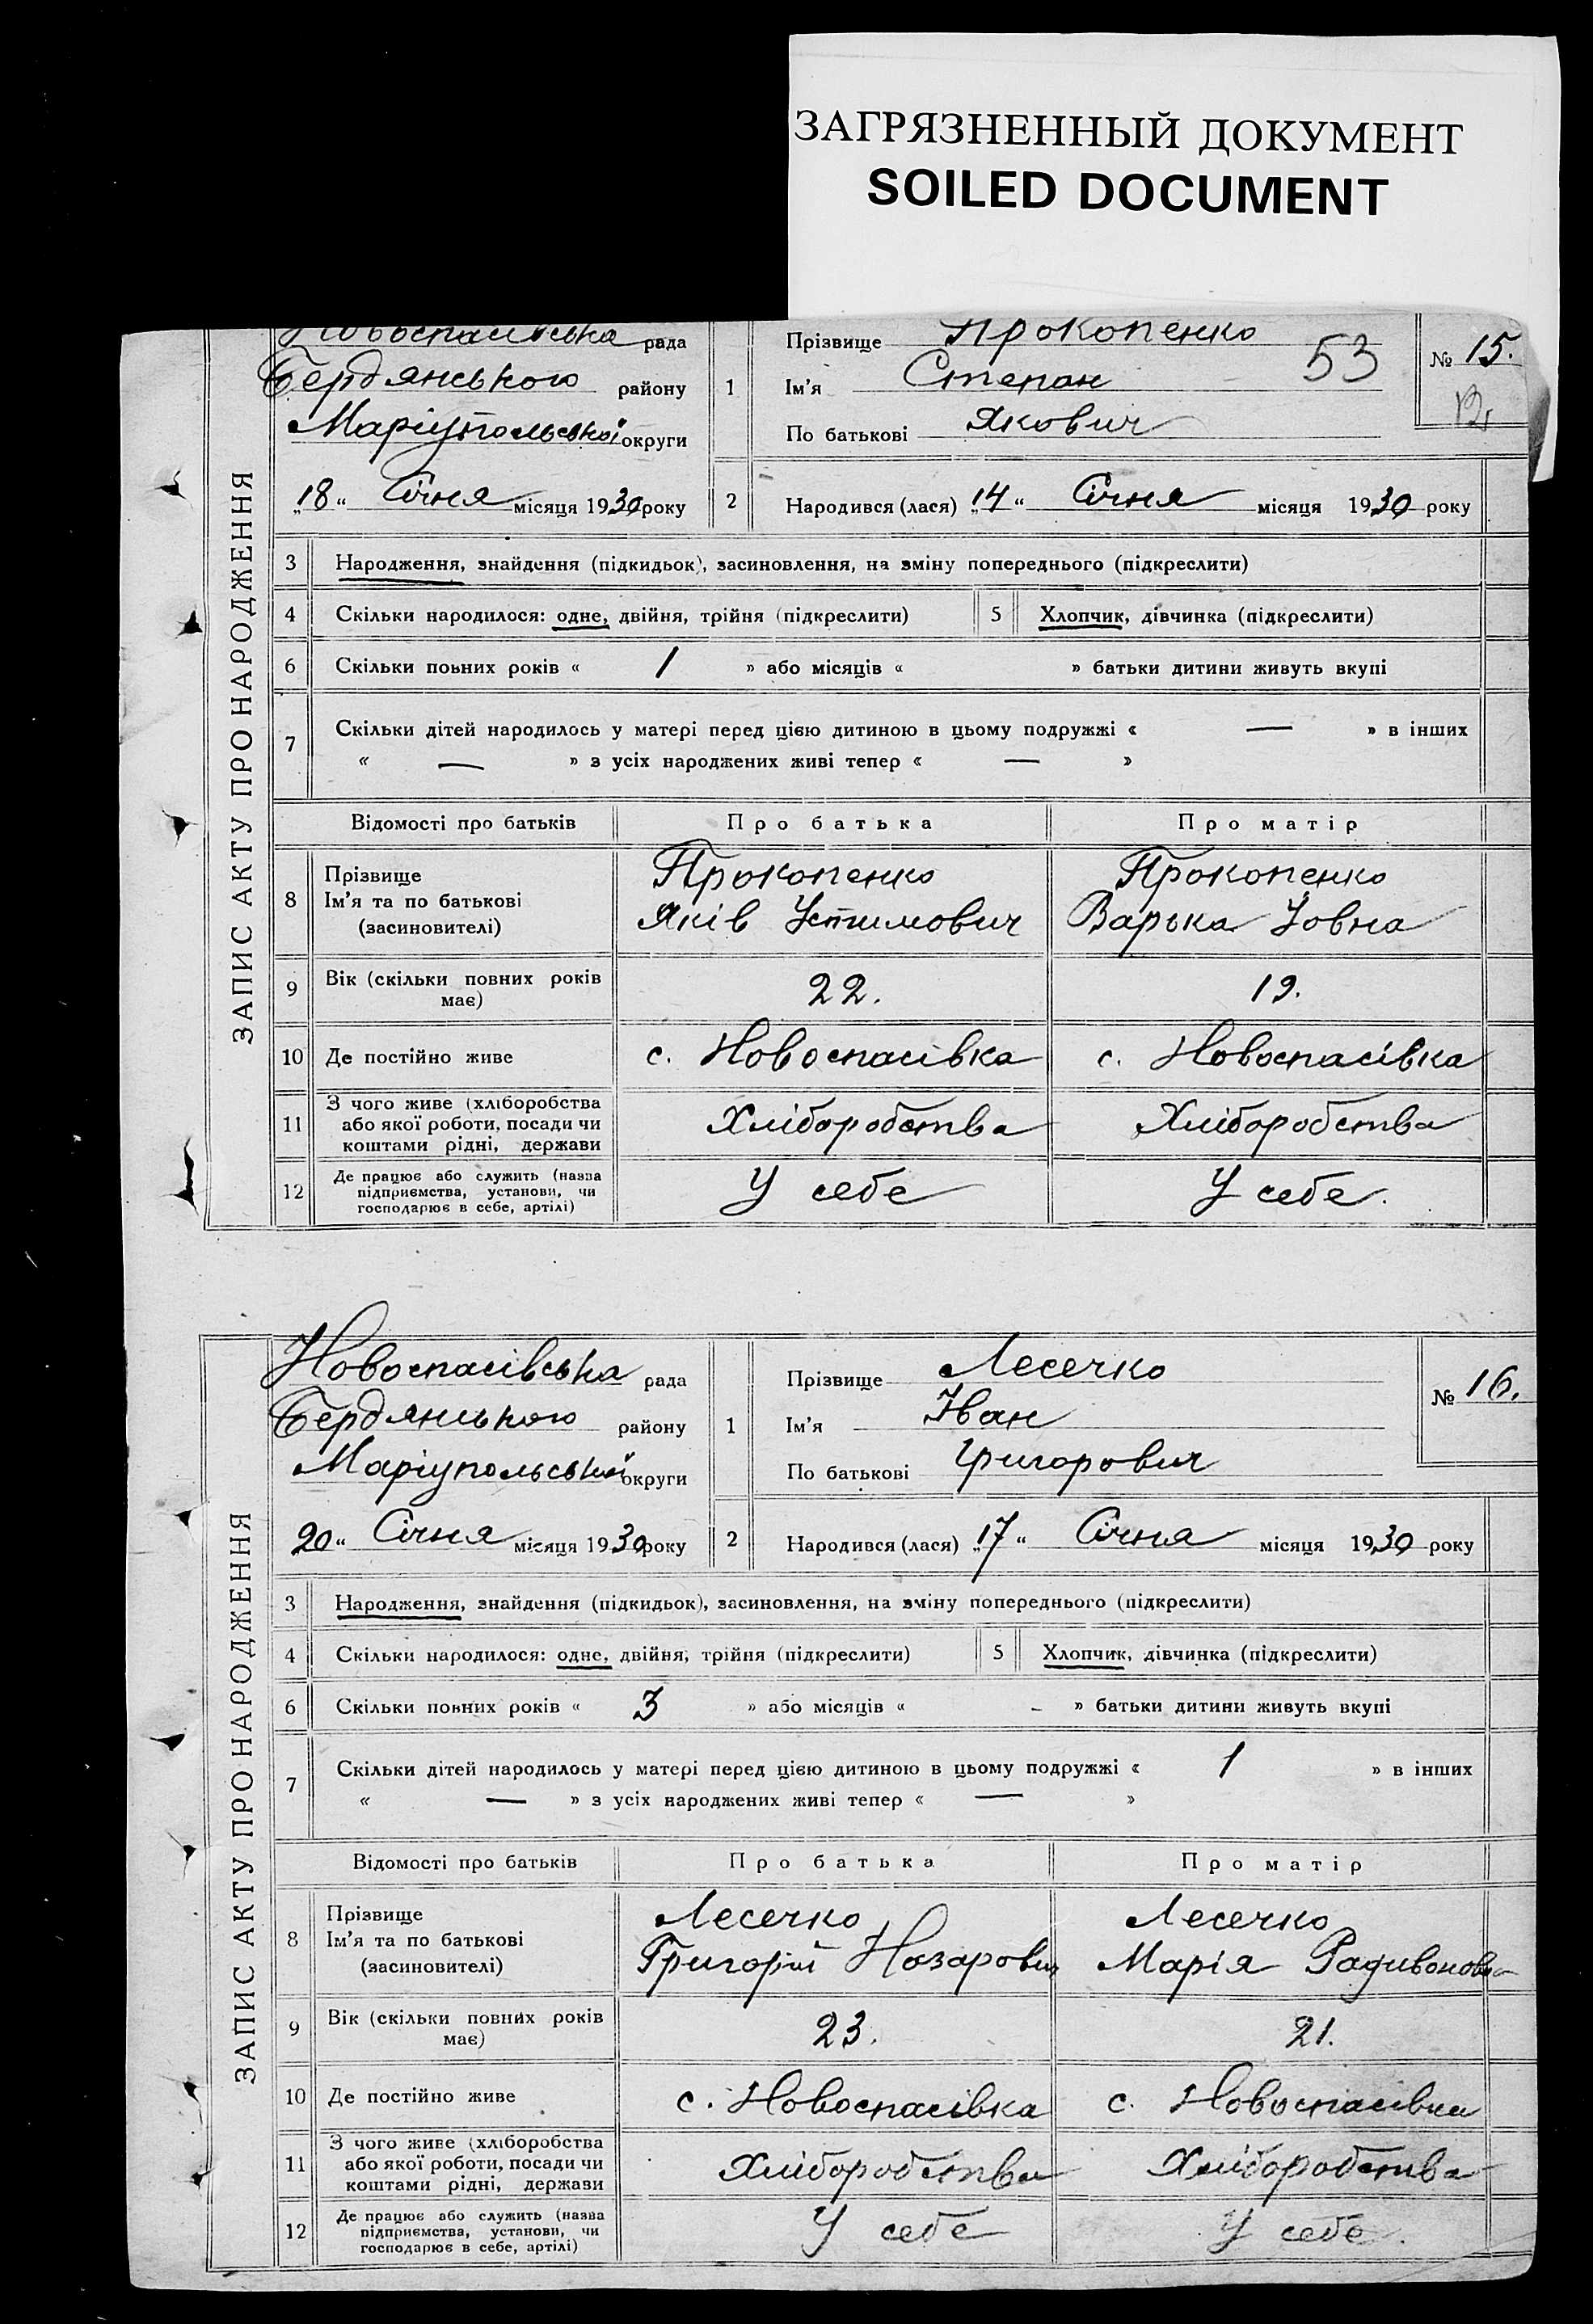 ЗАГРЯЗНЕННЫЙ ДОКУМЕНТ
SOILED DOCUMENT
ЗАПИС АКТУ ПРО НАРОДЖЕННЯ
Новоспасівська рада
Бердянського району
Маріупольської округи
„18“ Січня місяця 1930 року
1
Прізвище Прокопенко
Ім'я Степан
По батькові Якович
53
№ 15.
2 Народився (лася) „14“ Січня місяця 1930 року
3 Народження, знайдення (підкидьок), засиновлення, на зміну попереднього (підкреслити)
4 Скільки народилося: одне, двійня, трійня (підкреслити) 5 Хлопчик, дівчинка (підкреслити)
6 Скільки повних років « 1 » або місяців « » батьки дитини живуть вкупі
7 Скільки дітей народилось у матері перед цією дитиною в цьому подружжі « — » в інших
« — » з усіх народжених живі тепер « — »
Відомості про батьків Про батька Про матір
8 Прізвище Прокопенко Прокопенко
Ім'я та по батькові Яків Устимович Варька Іовна
(засиновителі)
9 Вік (скільки повних років має) 22. 19.
10 Де постійно живе с. Новоспасівка с. Новоспасівка
11 З чого живе (хліборобства
або якої роботи, посади чи Хліборобства Хліборобства
коштами рідні, держави
12 Де працює або служить (назва
підприємства, установи, чи У себе У себе.
господарює в себе, артілі)
ЗАПИС АКТУ ПРО НАРОДЖЕННЯ
Новоспасівська рада
Бердянського району
Маріупольської округи
20“ Січня місяця 1930 року
1
Прізвище Лесечко
Ім'я Іван
По батькові Григорович
№ 16.
2 Народився (лася) „17“ Січня місяця 1930 року
3 Народження, знайдення (підкидьок), засиновлення, на зміну попереднього (підкреслити)
4 Скільки народилося: одне, двійня, трійня (підкреслити) 5 Хлопчик, дівчинка (підкреслити)
6 Скільки повних років « 3 » або місяців « - » батьки дитини живуть вкупі
7 Скільки дітей народилось у матері перед цією дитиною в цьому подружжі « 1 » в інших
« — » з усіх народжених живі тепер « — »
Відомості про батьків Про батька Про матір
8 Прізвище Лесечко Лесечко
Ім'я та по батькові Григорій Назарович Марія Радивоновна
(засиновителі)
9 Вік (скільки повних років має) 23. 21.
10 Де постійно живе с. Новоспасівка с. Новоспасівка
11 З чого живе (хліборобства
або якої роботи, посади чи Хліборобства Хліборобства
коштами рідні, держави
12 Де працює або служить (назва
підприємства, установи, чи У себе У себе.
господарює в себе, артілі)